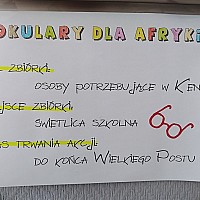 OKULARY DLA AFRYKI
ZBIÓRKI:
OSOBY POTRZEBUJĄCE W KEN
ZBIÓRKI:
ŚWIETLICA SZKOLNA
TRWANIA AKCJI:
DO KOŃCA WIELKIEGO POSTU